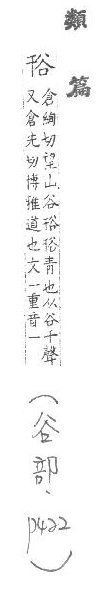 類篇
谸
倉絢切望山谷谸谸青也从谷千聲
又倉先切博雅道也文一重音一
(谷部、p422)